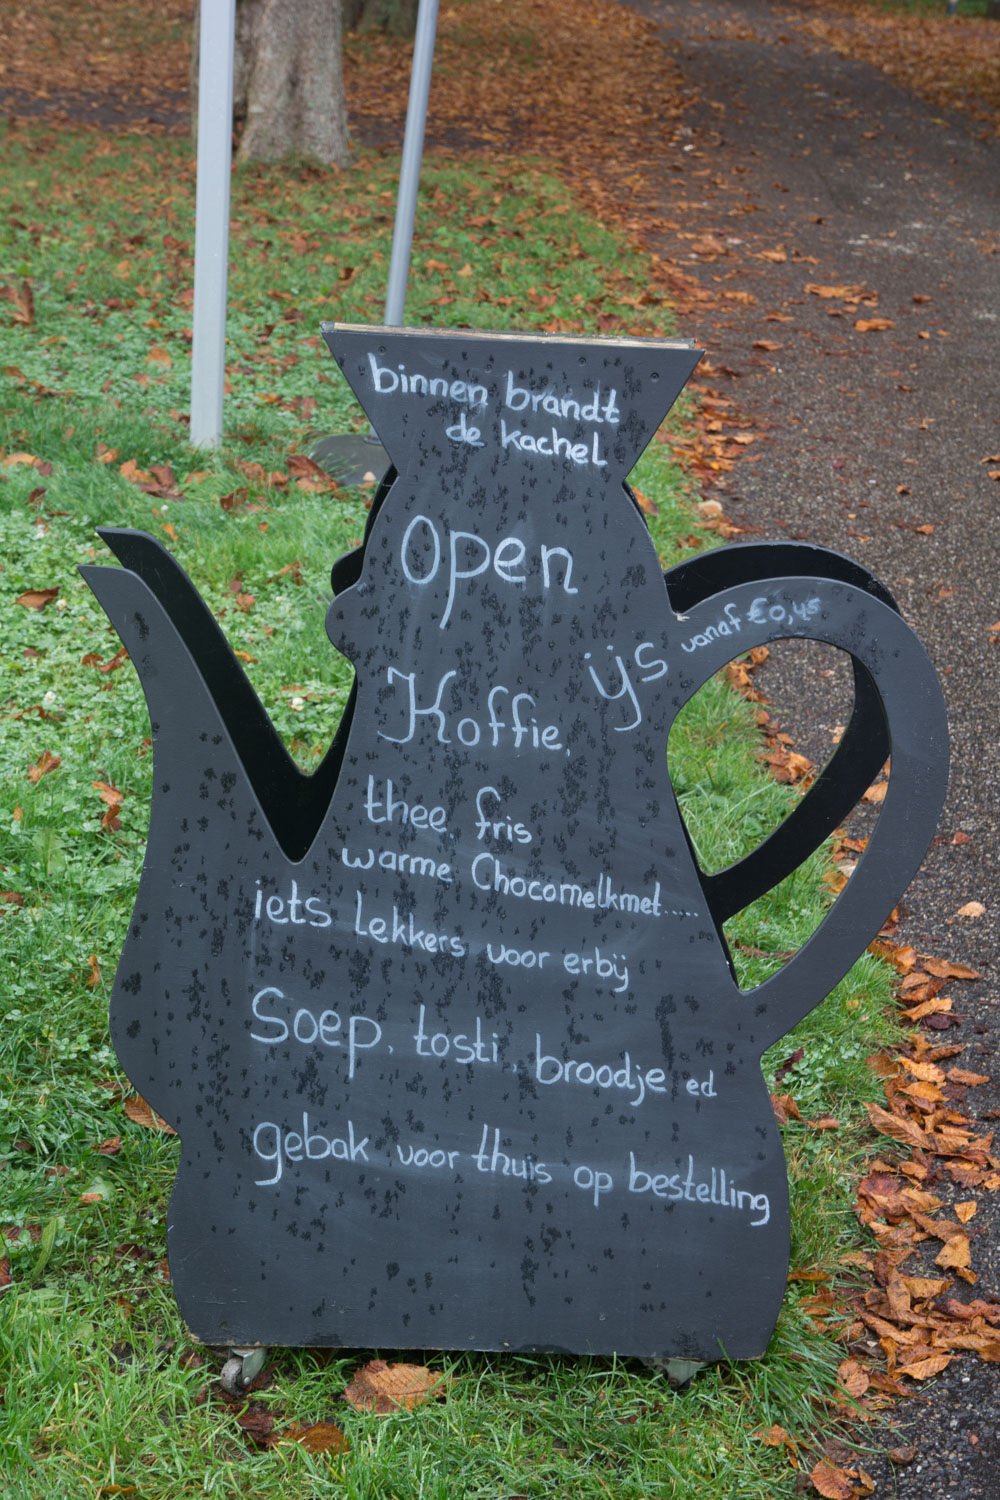 binnen brandt
de kachel
open
ijs vanaf €0,45
Koffie,
thee, fris
warme Chocomelkmet.....
iets lekkers voor erbij
Soep, tosti, broodje ed
gebak voor thuis op bestelling